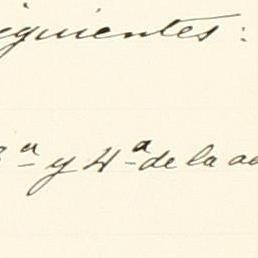 siguientes:
3ª y 4ª de la